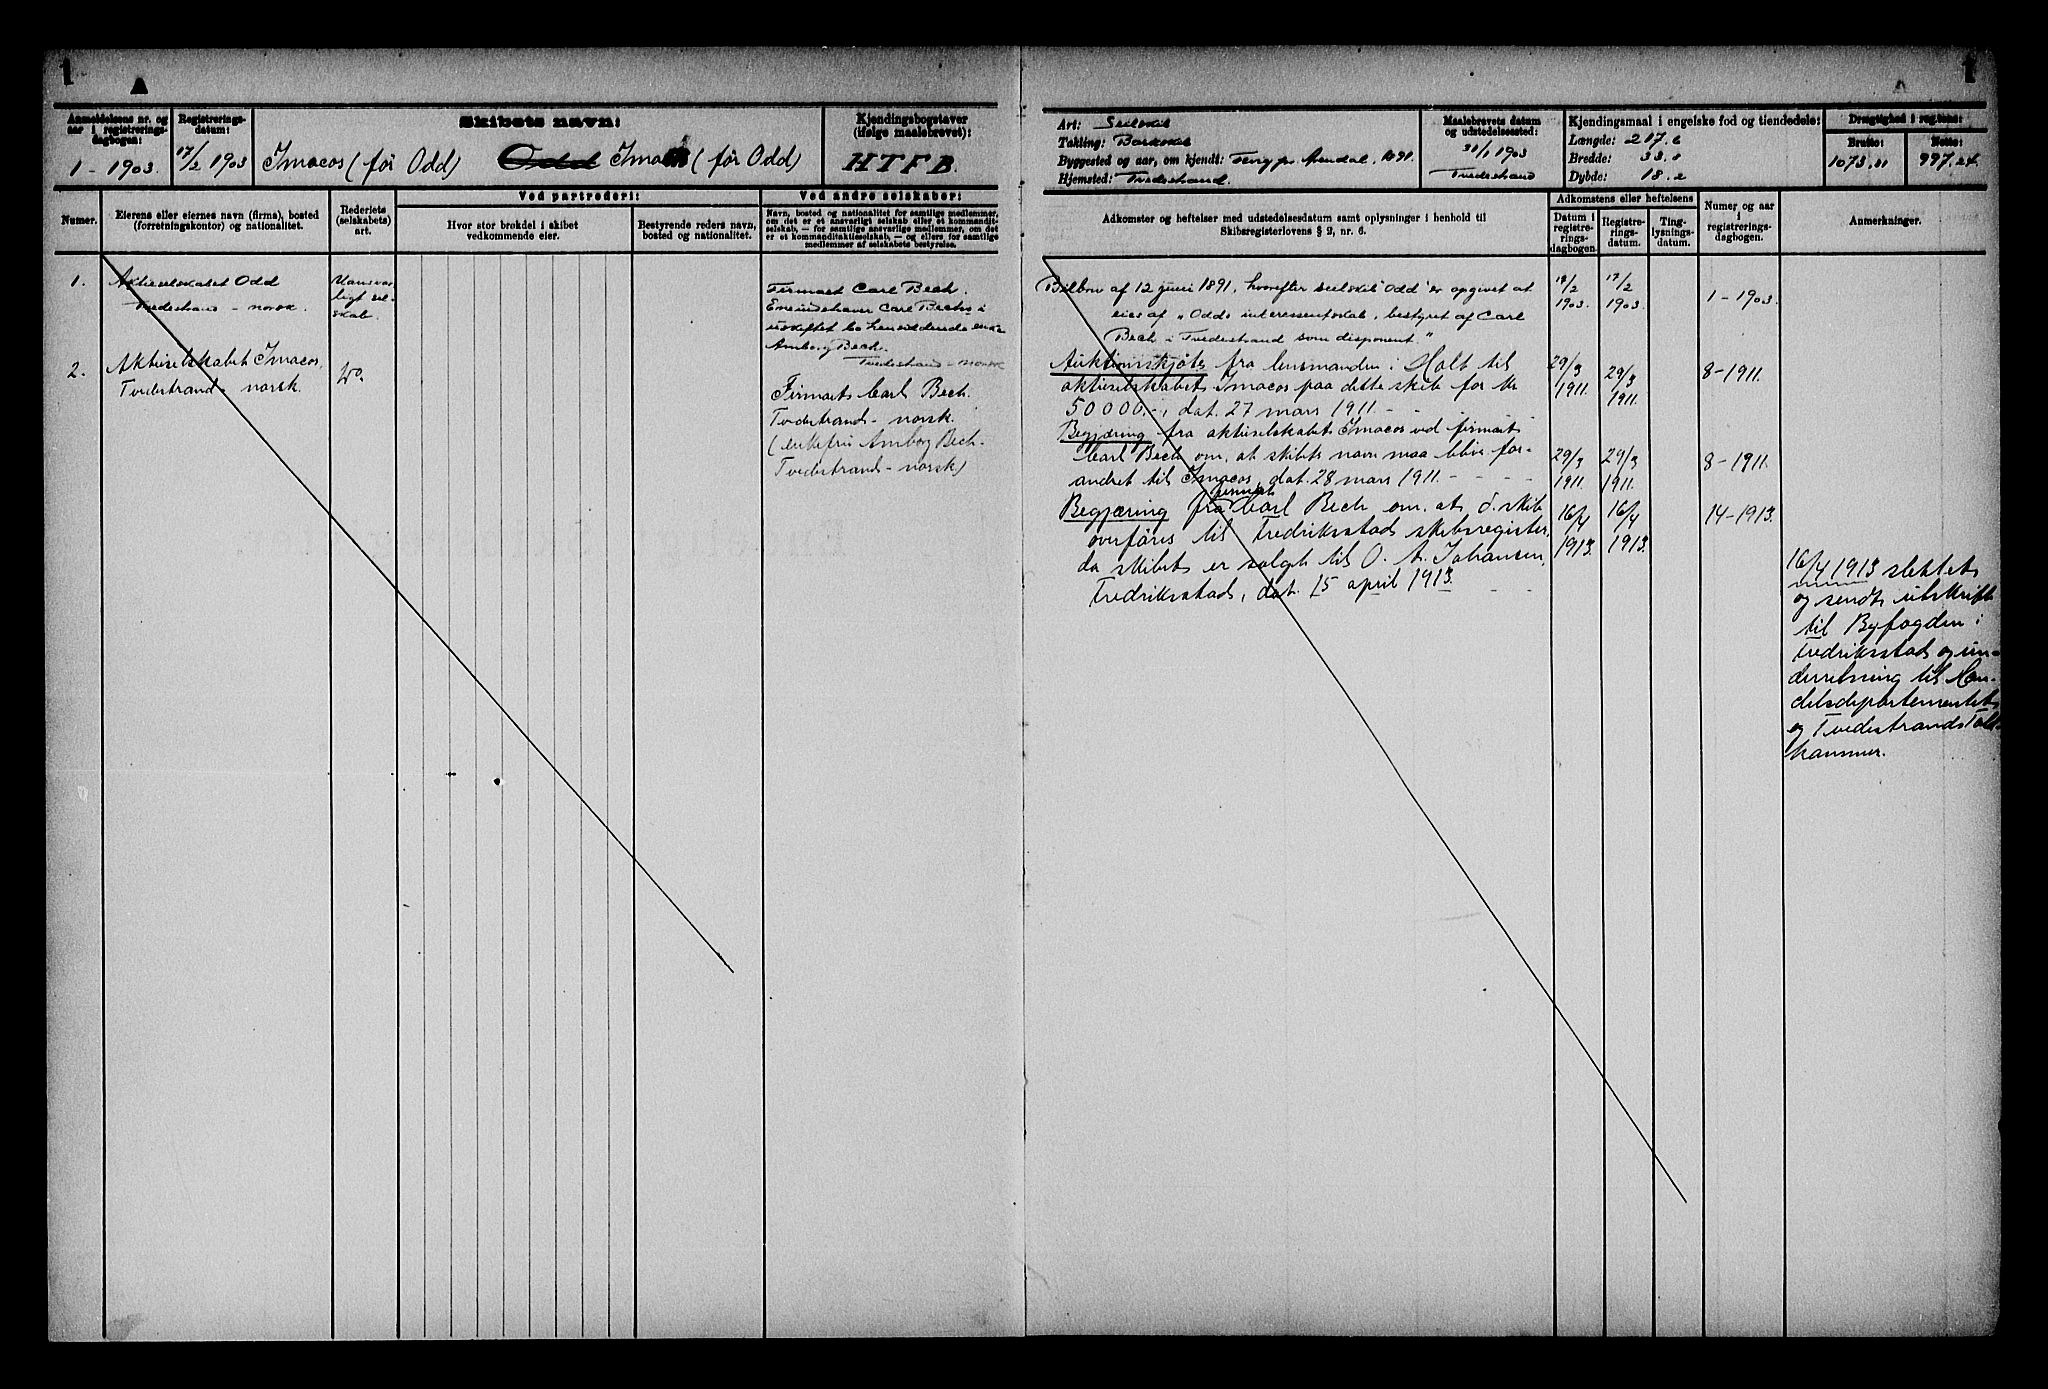 1
1
Anmeldelsens nr. og
aar i registrerings-
dagbogen:
1 - 1903.
Registrerings-
datum:
17/2 1903
Skibets navn:
Imacos (før Odd) Odd (før Odd)
Kjendingsbogstaver
(ifølge maalebrevet):
HTFB.
Art: Seilskib
Takling: Barkskib
Byggested og aar, om kjendt: Arendal, 1891
Hjemsted: Tvedestrand.
Maalebrevets datum
og udstedelsessted:
31/1 1903
Tvedestrand
Kjendingsmaal i engelske fod og tiendedele:
Længde: 217.6
Bredde: 33.
Dybde: 18.2
Drægtighed i reg.tons:
Brutto:
1073.11
Netto:
997.24
Numer.
Eierens eller eiernes navn (firma), bosted
(forretningskontor) og nationalitet.
Rederiets
(selskabets)
art.
Ved partrederi:
Hvor stor brøkdel i skibet
vedkommende eier.
Bestyrende reders navn,
bosted og nationalitet.
Ved andre selskaber:
Navn, bosted og nationalitet for samtlige medlemmer,
om det er et ansvarligt selskab eller et kommandit-
selskab, — for samtlige ansvarlige medlemmer, om det
er et kommanditaktieselskab, — og ellers for samtlige
medlemmer af selskabets bestyrelse.
1.
Aktieselskabet Odd
Tvedestrand - norsk.
Uansvar-
ligt sel-
skab.
Firmaet Carl Bech.
Eneindehaver Carl Bechs i
uskiftet bo hensiddende enke
Amborg Bech.
Tvedestrand - norsk
2.
Aktieselskabet Imacos,
Tvedestrand - norsk.
Do.
Firmaet Carl Bech.
Tvedestrand - norsk.
(enkefru Amborg Bech -
Tvedestrand - norsk)
Adkomster og heftelser med udstedelsesdatum samt oplysninger i henhold til
Skibsregisterlovens § 2, nr. 6.
Adkomstens eller heftelsens
Datum i
registre-
rings-
dagbogen.
Registre-
rings-
datum.
Ting-
lysnings-
datum.
Numer og aar
i
registrerings-
dagbogen.
Anmerkninger.
Bilbrev af 12 juni 1891, hvorefter seilskib "Odd" er opgivet at
eies af "Odds interessentskab, bestyret af Carl
Bech i Tvedestrand som disponent."
17/2
1903.
1 - 1903.
Auktionsskjøte fra lensmanden i Holt til
aktieselskabet Imacos paa dette skib for kr
50000.-, dat. 27 mars 1911.
29/3
1911.
29/3
1911.
8 - 1911.
Begjæring fra aktieselskabet Imacos ved firmaet
Carl Bech om, at skibets navn maa blive for-
andret til Imacos, dat. 28 mars 1911.
29/3
1911.
29/3
1911.
8 - 1911.
Begjæring fra firmaet Carl Bech om, at d. skib
overføres til Fredriksstads skibsregister,
da skibet er solgt til O. A. Johansen,
Fredriksstad, dat. 15 april 1913.
16/4
1913.
16/4
1913.
14 - 1913.
16/4 1913 slettet
og sendt utskrift
til Byfogden i
Fredriksstad og un-
derretning til Han-
delsdepartementet
og Tvedestrands Told-
kammer.